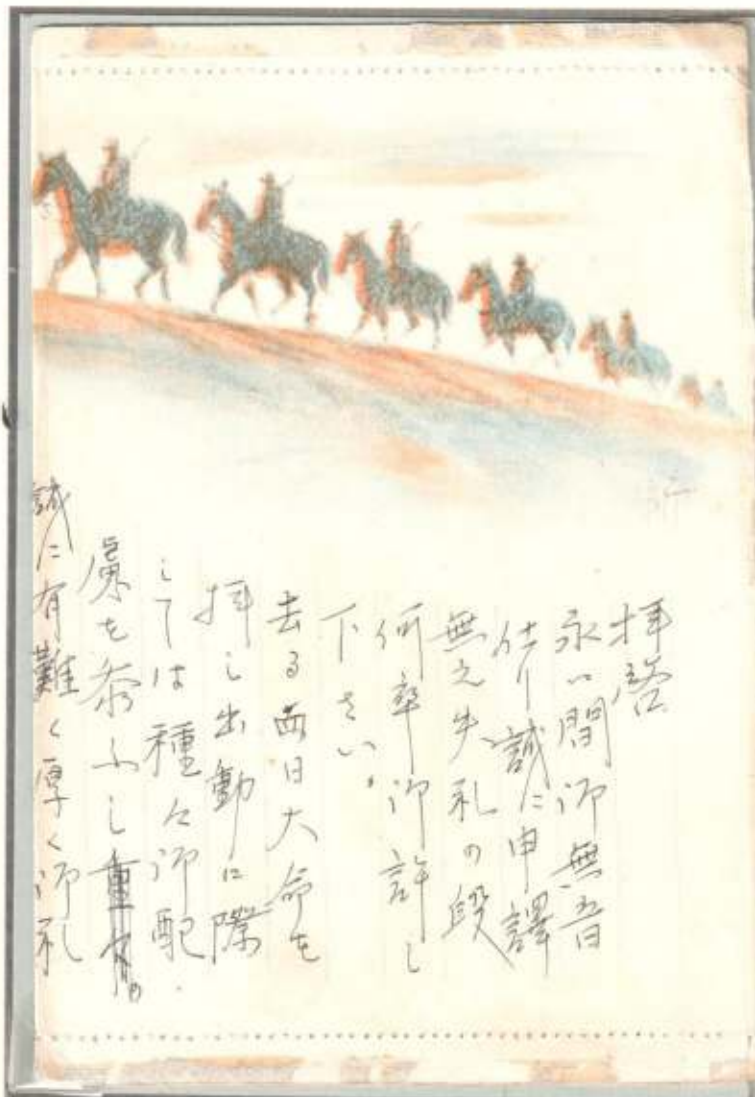 拝啓
永い間御無音
仕り誠に申譯
無之失礼の段
何卒御許し
下さい。
去る 日大命を
拝し出動に際
しては種々御配
慮を忝ふし
誠に有難く厚く御礼